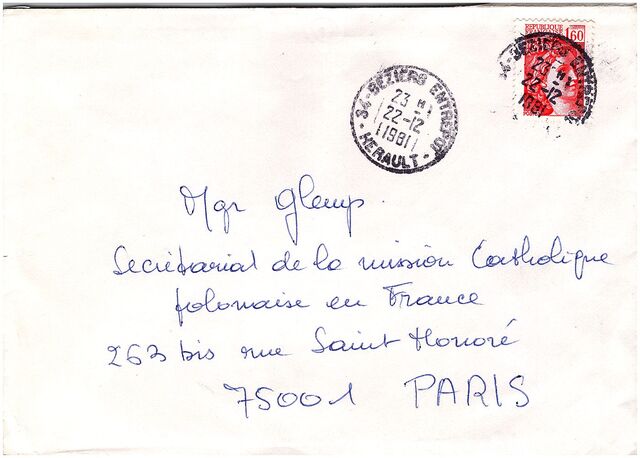 REPUBLIQUE
1,60
34-BEZIERS ENTREPOT
23 H
22-12
1981
- HERAULT -
34-BEZIERS ENTREPOT
23 H
22-12
1981
Mgr Glemp.
Secrétariat de la mission Catholique
polonaise en France
263 bis rue Saint Honoré
75001 PARIS